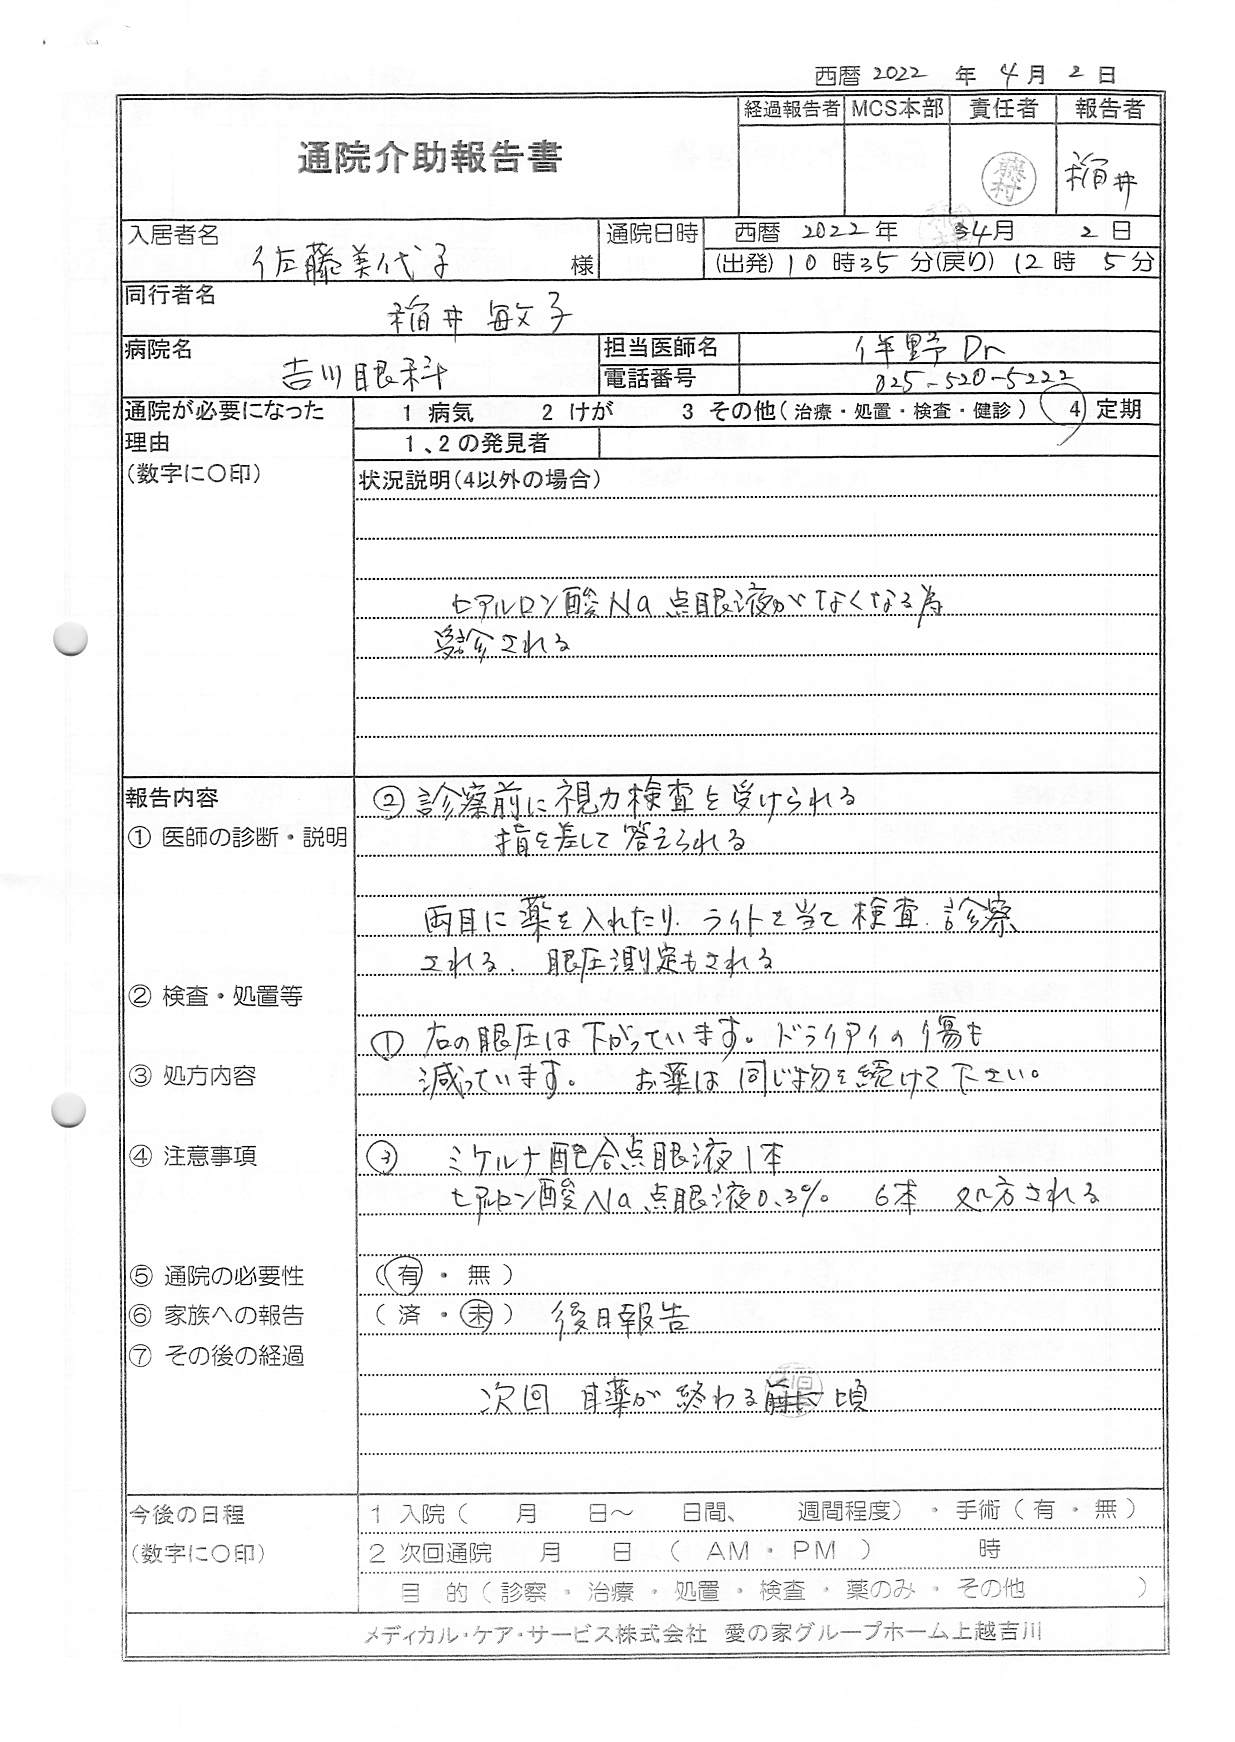 西暦 2022 年 4月 2日
経過報告者 MCS本部 責任者 報告者
通院介助報告書
藤村 稲井
入居者名 佐藤美代子 様
通院日時 西暦 2022年 4月 2日
(出発) 10時35分 (戻り) 12時 5分
同行者名 稲井 敏子
病院名 吉川眼科
担当医師名 伴野Dr
電話番号 025-520-5222
通院が必要になった理由
(数字に〇印)
1 病気 2 けが 3 その他(治療・処置・検査・健診) 4 定期
1、2の発見者
状況説明(4以外の場合)
ヒアルロン酸Na点眼液がなくなる為
受診される
報告内容
① 医師の診断・説明
② 診療前に視力検査を受けられる
指を差して答えられる
両目に薬を入れたり、ライトを当て検査、診察
される、眼圧測定もされる
② 検査・処置等
① 右の眼圧は下がっています。ドライアイの傷も
③ 処方内容
減っています。 お薬は同じ物を続けて下さい。
④ 注意事項
③ ミケルナ配合点眼液1本
ヒアルロン酸Na点眼液0.3% 6本 処方される
⑤ 通院の必要性 (有・無)
⑥ 家族への報告 (済・未) 後日報告
⑦ その後の経過
次回 目薬が終わる頃
今後の日程
(数字に〇印)
1 入院( 月 日～ 日間、 週間程度)・手術(有・無)
2 次回通院 月 日 ( AM・PM ) 時
目 的(診察・治療・処置・検査・薬のみ・その他 )
メディカル・ケア・サービス株式会社 愛の家グループホーム上越吉川